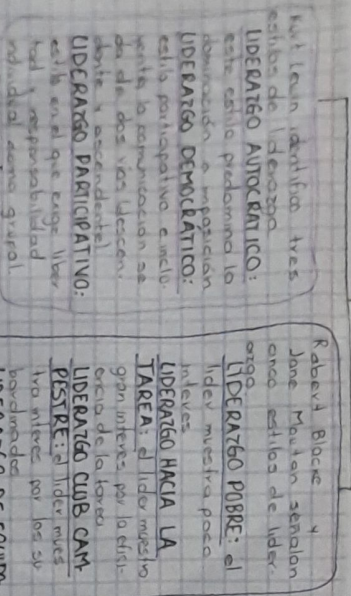 Kurt Lewin identifico tres
estilos de liderazgo
LIDERAZGO AUTOCRATICO:
este estilo predomina la
dominación o imposición
LIDERAZGO DEMOCRÁTICO:
estilo participativo e inclu.
la comunicación se
da de dos vias (descen.
dente y ascendente)
LIDERAZGO PARTICIPATIVO:
estilo en el que exige liber
tad y responsabilidad
individual como grupal.
Robert Blacke y
Jane Moutan señalan
cinco estilos de lider.
azgo
LIDERAZGO POBRE: el
lider muestra poco
interes
LIDERAZGO HACIA LA
TAREA: el lider muestra
gran interes por la efici-
encia de la tarea
LIDERAZGO CLUB CAM-
PESTRE: el lider mues
tra interes por los su
bordinados
LIDERAZGO DE EQUIPO